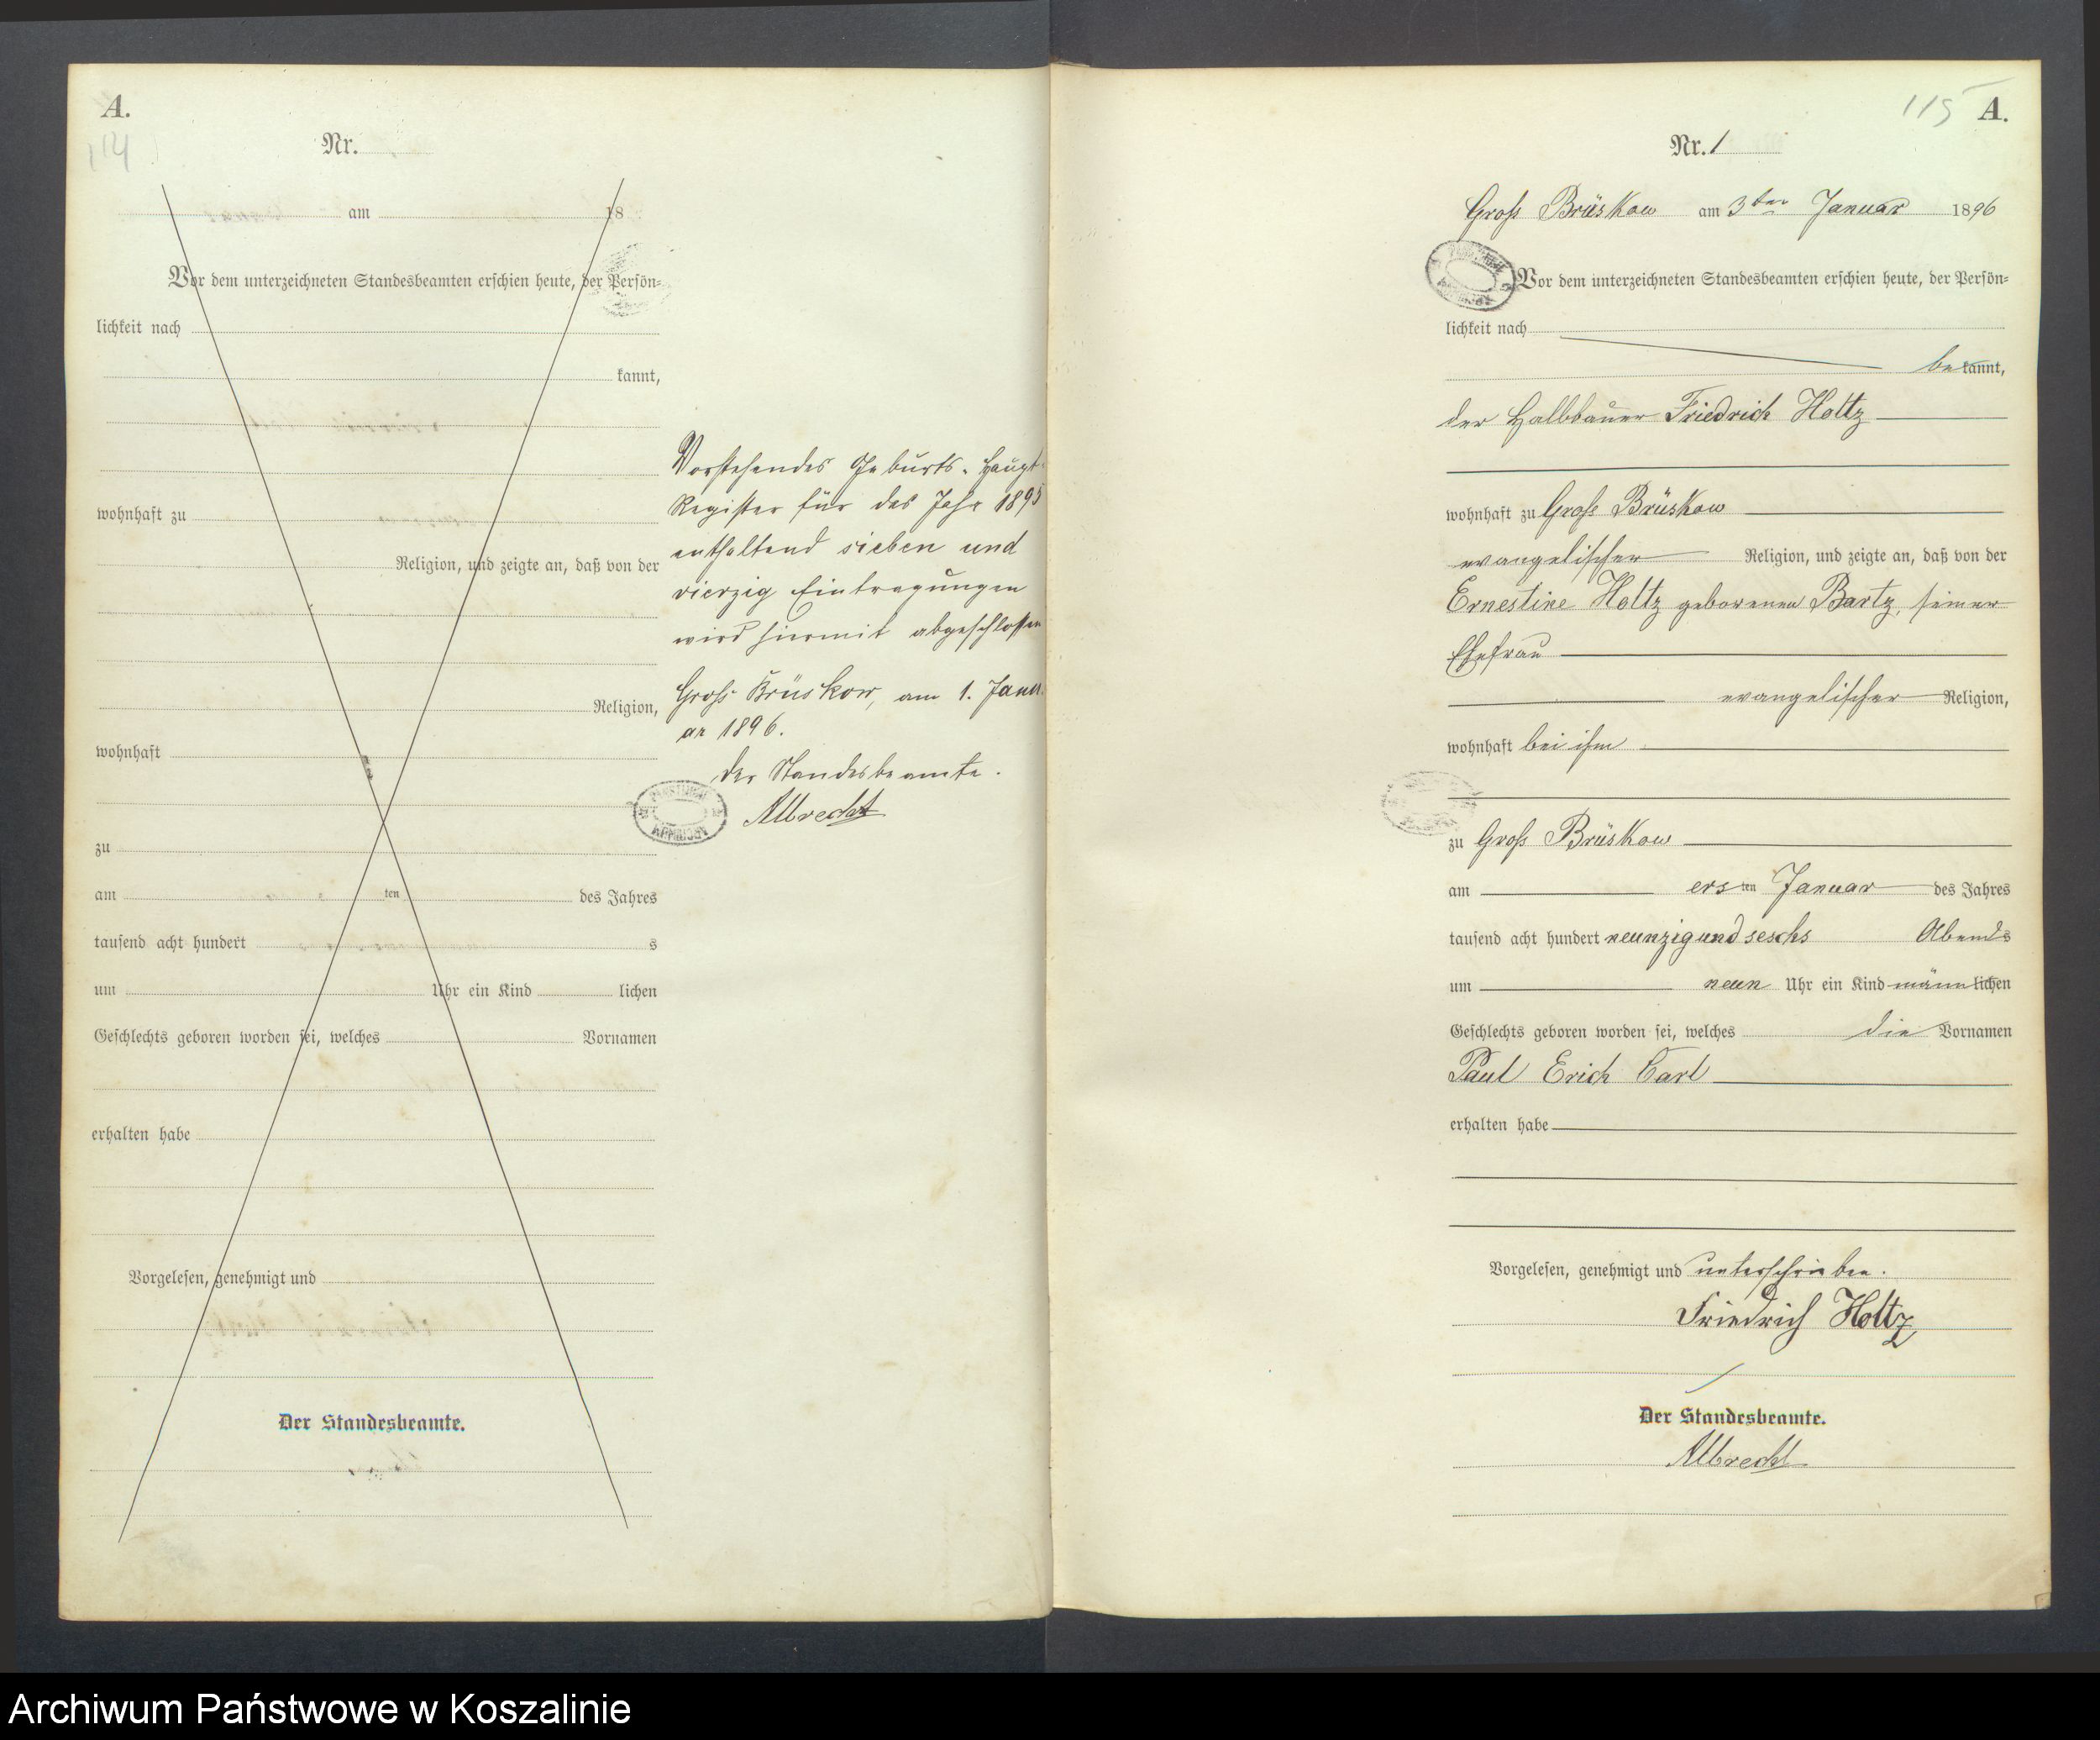 A.
114
Nr.
am 18
Vor dem unterzeichneten Standesbeamten erschien heute, der Persön-
lichkeit nach
kannt,
wohnhaft zu
Religion, und zeigte an, daß von der
Religion,
wohnhaft
zu
am ten des Jahres
tausend acht hundert s
um Uhr ein Kind lichen
Geschlechts geboren worden sei, welches Vornamen
erhalten habe
Vorgelesen, genehmigt und
Der Standesbeamte.
Vorstehendes Geburts-Haupt-
Register für das Jahr 1895
enthaltend sieben und
vierzig Eintragungen
wird hiermit abgeschlossen
Groß Brüskow, am 1. Janu-
ar 1896.
Der Standesbeamte.
Albrecht
115 A.
Nr. 1
Groß Brüskow am 3ten Januar 1896
Vor dem unterzeichneten Standesbeamten erschien heute, der Persön-
lichkeit nach
bekannt,
der Halbbauer Friedrich Holtz
wohnhaft zu Groß Brüskow
evangelischer Religion, und zeigte an, daß von der
Ernestine Holtz geborenen Bartz, seiner
Ehefrau
evangelischer Religion,
wohnhaft bei ihm
zu Groß Brüskow
am ersten Januar des Jahres
tausend acht hundert neunzig und sechs Abends
um neun Uhr ein Kind männlichen
Geschlechts geboren worden sei, welches die Vornamen
Paul Erich Carl
erhalten habe
Vorgelesen, genehmigt und unterschrieben.
Friedrich Holtz
Der Standesbeamte.
Albrecht
Archiwum Państwowe w Koszalinie